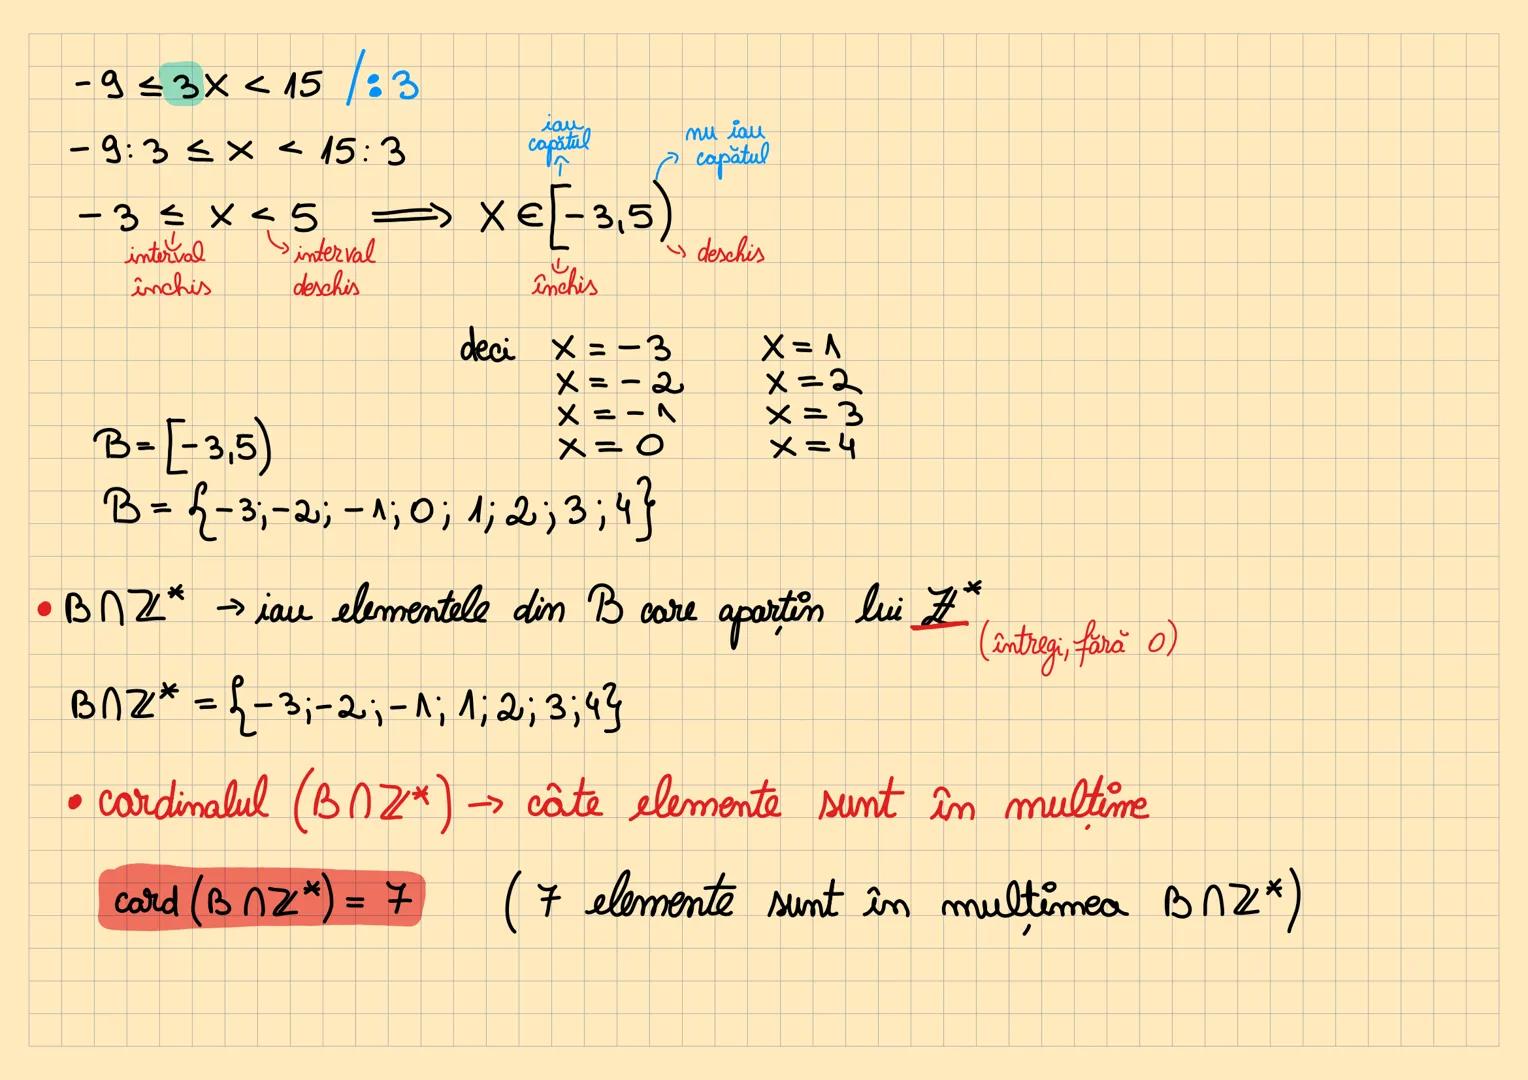 -9 ≤ 3x < 15 /:3
-9:3 ≤ x < 15:3
iau capătul
nu iau capătul
-3 ≤ x < 5 ⟹ x ∈ [-3,5)
interval închis
interval deschis
închis
deschis
deci x = -3 x = 1
x = -2 x = 2
x = -1 x = 3
x = 0 x = 4
B = [-3,5)
B = {-3; -2; -1; 0; 1; 2; 3; 4}
• B∩ℤ* → iau elementele din B care aparțin lui ℤ*
(întregi, fără 0)
B∩ℤ* = {-3; -2; -1; 1; 2; 3; 4}
• cardinalul (B∩ℤ*) → câte elemente sunt în mulțime
card (B∩ℤ*) = 7 (7 elemente sunt în mulțimea B∩ℤ*)